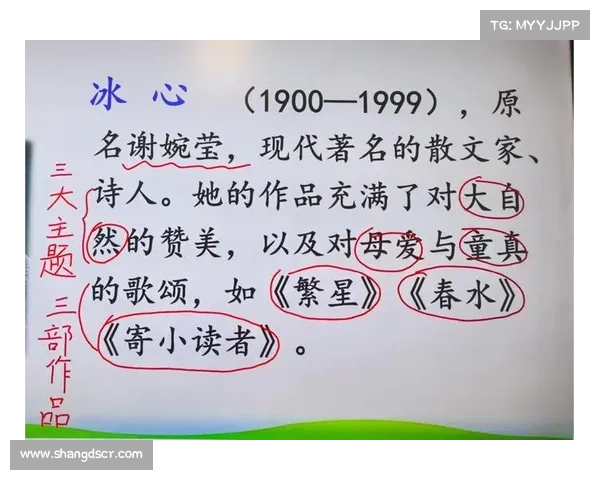 TG: MYYJJPP
冰 心 （1900—1999），原
名谢婉莹，现代著名的散文家、
诗人。她的作品充满了对大自
然的赞美，以及对母爱与童真
的歌颂，如《繁星》《春水》
《寄小读者》。
三大主题
三部作品
www.shangdscr.com